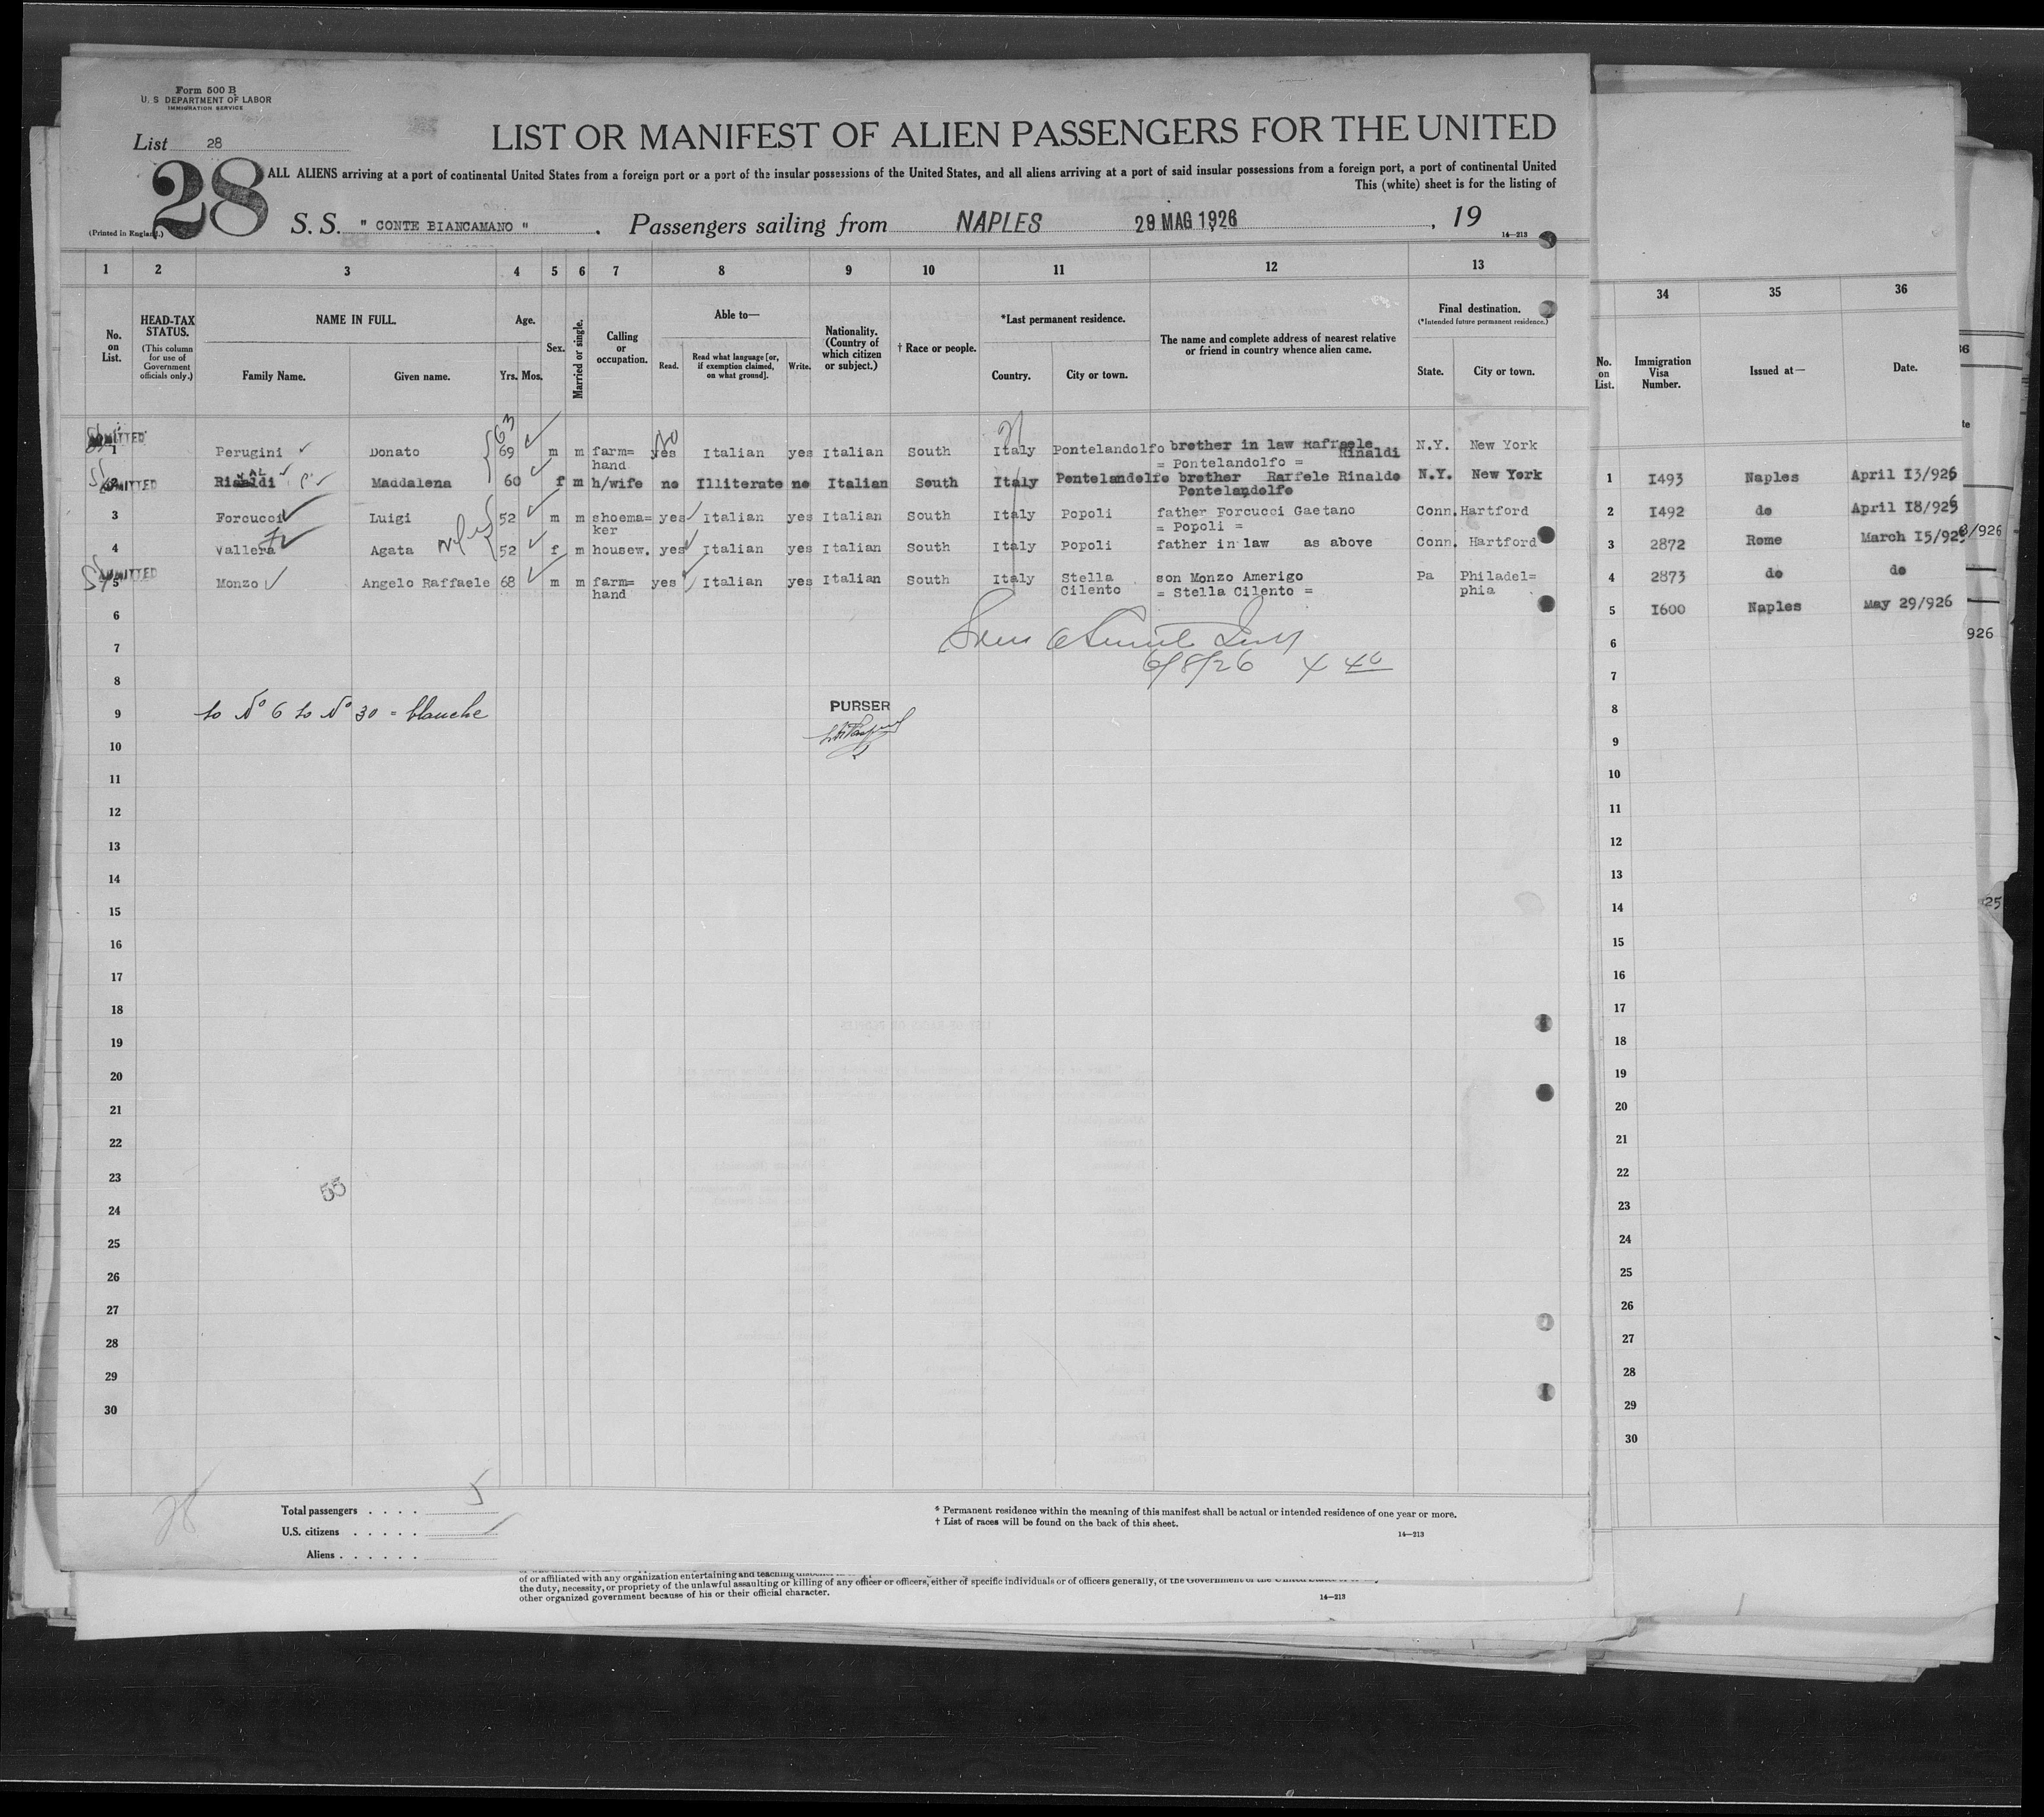 Form 500 B
U. S. DEPARTMENT OF LABOR
IMMIGRATION SERVICE
List 28
28
LIST OR MANIFEST OF ALIEN PASSENGERS FOR THE UNITED
ALL ALIENS arriving at a port of continental United States from a foreign port or a port of the insular possessions of the United States, and all aliens arriving at a port of said insular possessions from a foreign port, a port of continental United
This (white) sheet is for the listing of
(Printed in England.)
S. S. " CONTE BIANCAMANO " . Passengers sailing from NAPLES 29 MAG 1926 , 19
14—213
1 2 3 4 5 6 7 8 9 10 11 12 13
No. on List.
HEAD-TAX STATUS. (This column for use of Government officials only.)
NAME IN FULL.
Family Name. Given name.
Age.
Yrs. Mos.
Sex.
Married or single.
Calling or occupation.
Able to—
Read. Read what language [or, if exemption claimed, on what ground]. Write.
Nationality. (Country of which citizen or subject.)
† Race or people.
*Last permanent residence.
Country. City or town.
The name and complete address of nearest relative or friend in country whence alien came.
Final destination.
(*Intended future permanent residence.)
State. City or town.
ADMITTED 63 No
1 Perugini Donato 69 m m farm= hand yes Italian yes Italian South Italy Pontelandolfo brother in law Raffaele Rinaldi = Pontelandolfo = N.Y. New York
ADMITTED Rinaldi Maddalena 60 f m h/wife no Illiterate no Italian South Italy Pontelandolfo brother Raffele Rinaldo Pontelandolfo N.Y. New York
3 Forcucci Luigi 52 m m shoema= ker yes Italian yes Italian South Italy Popoli father Forcucci Gaetano = Popoli = Conn. Hartford
4 Vallera Agata 52 f m housew. yes Italian yes Italian South Italy Popoli father in law as above Conn. Hartford
ADMITTED
5 Monzo Angelo Raffaele 68 m m farm= hand yes Italian yes Italian South Italy Stella Cilento son Monzo Amerigo = Stella Cilento = Pa Philadel= phia
6
7
6/8/26
8
9 to No 6 to No 30 = blanche
PURSER
10
11
12
13
14
15
16
17
18
19
20
21
22
23
55
24
25
26
27
28
29
30
28
Total passengers . . . . 5
U.S. citizens . . . . .
Aliens . . . . . .
* Permanent residence within the meaning of this manifest shall be actual or intended residence of one year or more.
† List of races will be found on the back of this sheet.
14—213
of or affiliated with any organization entertaining and teaching
the duty, necessity, or propriety of the unlawful assaulting or killing of any officer or officers, either of specific individuals or of officers generally, of the Government of the United States
other organized government because of his or their official character.
14—213
34 35 36
No. on List.
Immigration Visa Number.
Issued at—
Date.
1 I493 Naples April I3/926
2 I492 do April I8/926
3 2872 Rome March I5/926
4 2873 do do
5 I600 Naples May 29/926
6
7
8
9
10
11
12
13
14
15
16
17
18
19
20
21
22
23
24
25
26
27
28
29
30
36
/926
926
25